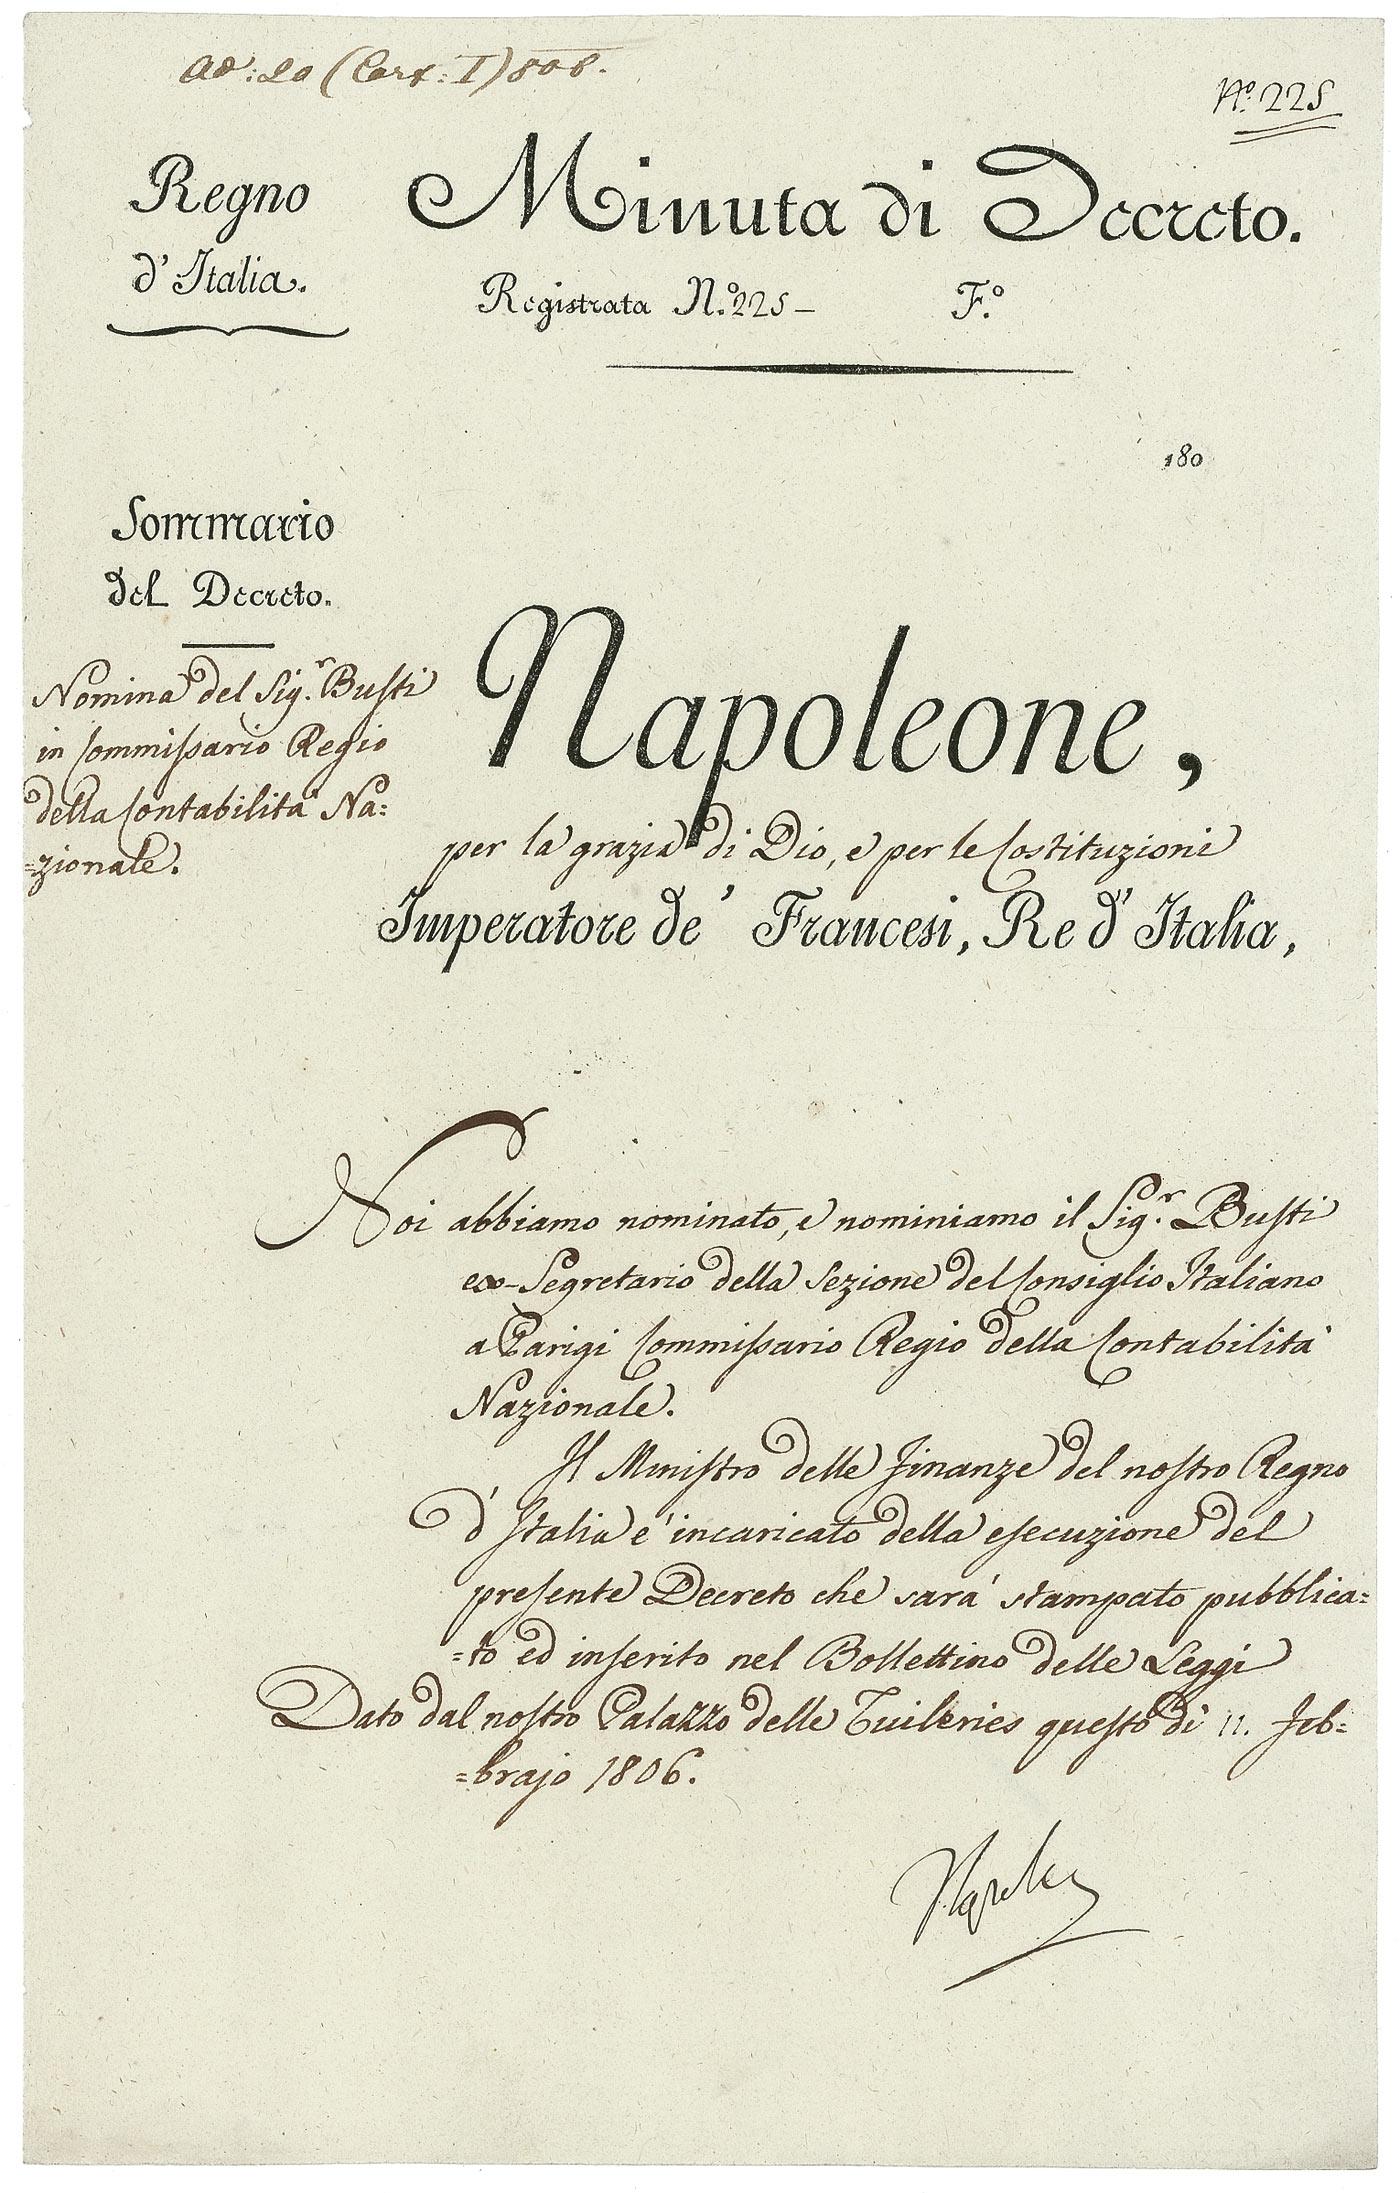 N.º 225
Regno
d'Italia.
Minuta di Decreto.
Registrata N.º 225 — F.º
180
Sommario
del Decreto.
Nomina del Sig.r Busti
in Commissario Regio
della Contabilità Na=
=zionale.
Napoleone,
per la grazia di Dio, e per le Costituzioni
Imperatore de' Francesi, Re d'Italia,
Noi abbiamo nominato, e nominiamo il Sig.r Busti
ex-Segretario della Sezione del Consiglio Italiano
a Parigi Commissario Regio della Contabilità
Nazionale.
Il Ministro delle Finanze del nostro Regno
d'Italia è incaricato della esecuzione del
presente Decreto che sarà stampato pubblica=
=to ed inserito nel Bollettino delle Leggi
Dato dal nostro Palazzo delle Tuileries questo dì 11. Feb=
=brajo 1806.